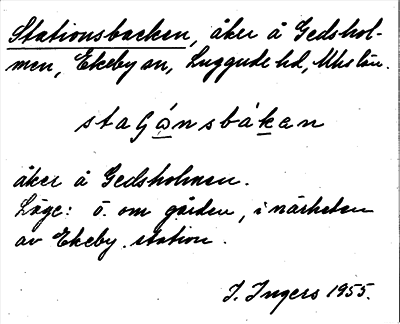 Stationsbacken, åker å Gedshol-
men, Ekeby sn, Luggude hd, Mhs län.
staʃọ́nsbákan
åker å Gedsholmen.
Läge: ö. om gården, i närheten
av Ekeby station.
I. Ingers 1955.